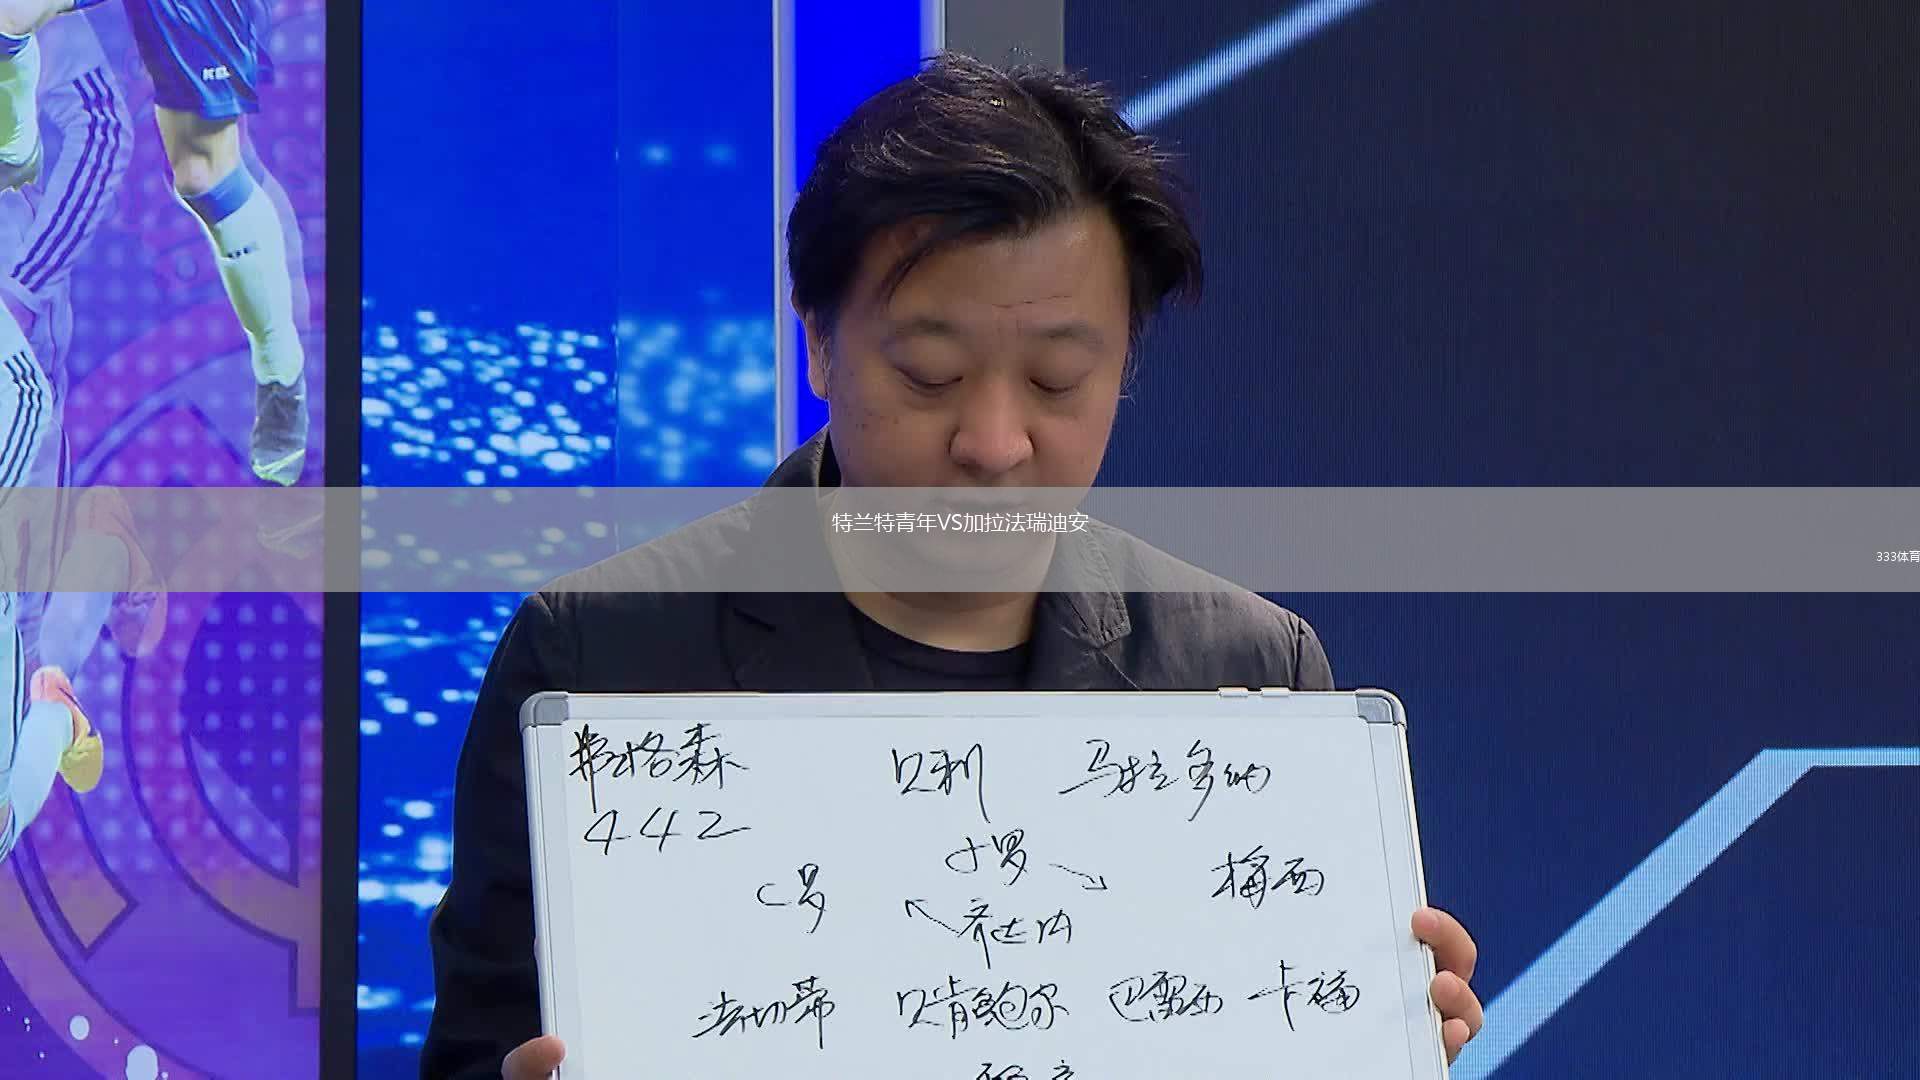 特兰特青年VS加拉法瑞迪安
333体育
弗格森 贝利 马拉多纳
442
小罗
C罗 梅西
齐达内
法切蒂 贝肯鲍尔 巴雷西 卡福